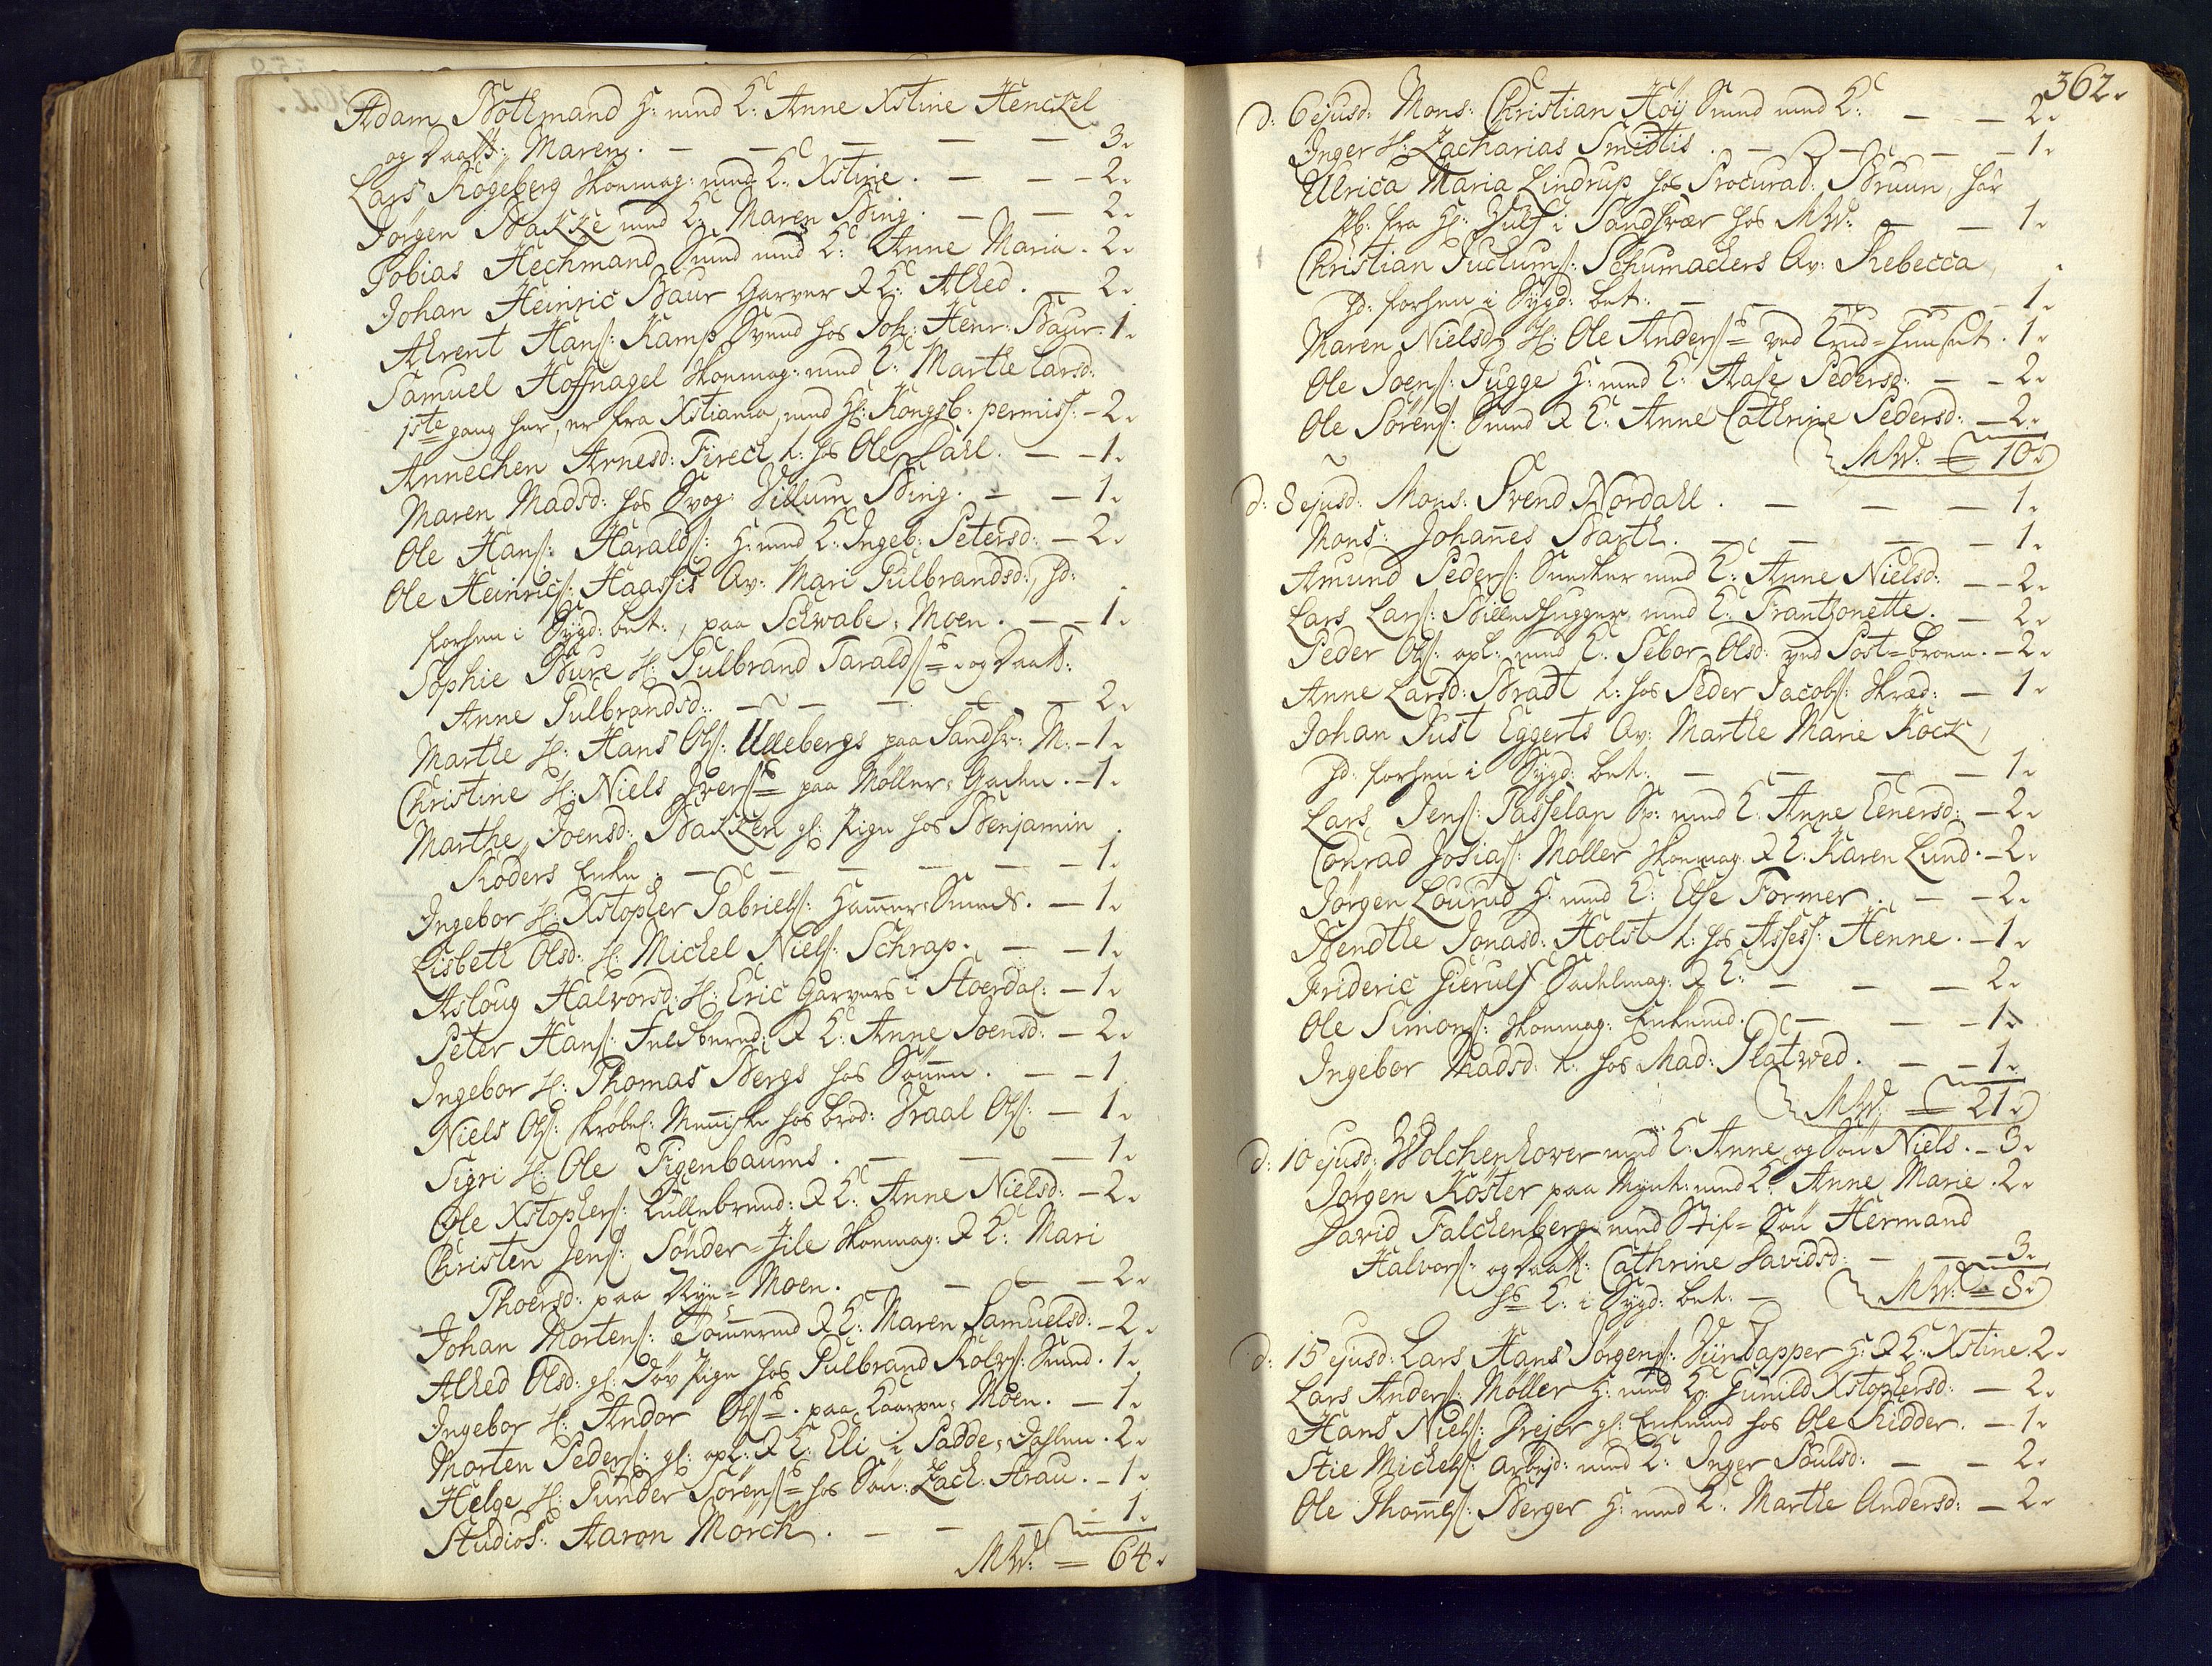 Adam Bothmand H: med K: Anne Xstine Henckel
og Daatt: Maren. — — — — — 3.
Lars Rogeberg Skomag: med K: Xstine. — — 2.
Jørgen Bakke med K: Maren Bing. — — 2.
Tobias Hechmand Smed med K: Anne Maria. 2.
Johan Heinric Baur Garver & K: Alhed. — 2.
Ahrent Hans: Kamp Svend hos Joh: Henr: Baur. 1.
Samuel Hoffnagel Skomag: med K: Marthe Larsd:
1ste gang her, er fra Xstiania, med Hr: Kongsb: permiss: — 2.
Annechen Arnesd: t: hos Ole Carl. — — 1.
Maren Madsd: hos Svog: Villum Bing. — — 1.
Ole Hans: Haralds: H: med K: Ingeb: Petersd: — 2.
Ole Heinrics: Haassis Qv: Mari Gulbrandsd:, Hd:
forhen i Sygd: bet:, paa Schwabe-Moen. — — 1.
Sophie Bure H: Gulbrand Taralds: og Daatt:
Anne Gulbrandsd: — — — — 2.
Marthe H: Hans Ols: Ullebergs paa Sandsv: M: — 1.
Christine H: Niels Ivers: paa Møller-Gaden. — 1.
Marthe Joensd: Bakken gl: Pige hos Benjamin
Röders Enke. — — — — — 1.
Ingebor H: Xstopher Gabriels: Hamer-Smeds. — 1.
Lisbeth Olsd: H: Michel Niels: Schrap. — — 1.
Asloug Halvorsd: H: Eric Garvers i Hoerdal: — 1.
Peter Hans: Feldbered: & K: Anne Joensd: — 2.
Ingebor H: Thomas Bergs hos Sönnen. — — 1
Niels Ols: skrøbel: Menniske hos Brod: Iraal Ols: — 1.
Sigri H: Ole Figenbaums. — — — 1.
Ole Xstophers: Kullebrend: & K: Anne Nielsd: — 2.
Christen Jens: Sønder-Jile Skomag: & K: Mari
Thoersd: paa Nye-Moen. — — — 2.
Johan Mortens: Tömmermd & K: Maren Samuelsd: — 2.
Alhed Olsd: gl: döv Pige hos Gulbrand Rolvs: Smed. 1.
Ingebor H: Andor Ols: paa Haarpe-Moen. — 1.
Morten Peders: gl: opl: & K: Eli i Sadde-Dahlen. 2.
Helge H: Gunder Sørens: hos Søn: Zach: Strau. — 1.
Studios: Aaron Mörch. — — — 1.
MW: = 64.
362.
d: 6 ejusd: Mons: Christian Höy Smed med K: — — 2.
Inger H: Zacharias Smidtis. — — — — 1.
Ulrica Maria Lindrup hos Procurad: Bruun, har
fra Hr: Wulf i Sandsvær hos MW: — — 1.
Christian Juctums: Schumachers Qv: Rebecca,
Hd: forhen i Sygd: bet: — — — — 1.
Maren Nielsd: H: Ole Anders: ved Krud-Huuset. 1.
Ole Joens: Tugge H: med K: Aase Pedersd: — — 2.
Ole Sörens: Smed & K: Anne Cathrine Pedersd: — 2.
MW: = 10.
d: 8 ejusd: Mons: Svend Nordahl. — — — 1.
Mons: Johañes Barth. — — — — 1.
Amund Peders: Snedker med K: Anne Nielsd: — — 2.
Lars Lars: Billedhugger med K: Frantzonette. — 2.
Peder Ols: opl: med K: Sebor Olsd: ved Post-broen. — 2.
Anne Larsd: Bradt t: hos Peder Jacobs: Skræd: — 1.
Johan Just Eggerts Qv: Marthe Marie Kock,
Hd: forhen i Sygd: bet: — — — — 1.
Lars Jens: Passelap Sp: med K: Anne Eenersd: — 2.
Conrad Josias: Möller Skomag. & K: Karen Lund. — 2.
Jörgen Lourud H: med K: Else Former. — — 2.
Bendthe Jonasd: Holst t: hos Assess: Henne. — 1.
Frideric Gierulf Sadelmag: & K: — — — 2.
Ole Simons: Skomag: Enkemd. — — — 1.
Ingebor Madsd: t: hos Mad: Platwed. — — 1.
MW: = 21.
d: 10 ejusd: Wolchenhover med K: Anne og Sön Niels. — 3.
Jörgen Köster paa Mynt: med K: Anne Marie. 2.
David Falchenberg med Stif-Sön Hermand
Halvors: og Daatt: Cathrine Davidsd: — — 3.
Hs K: i Sygd: bet: — MW: = 8.
d: 15 ejusd: Lars Hans Jörgens: Viintapper H: & K: Xstine. 2.
Lars Anders: Möller H: med K: Gunild Xstophersd: — 2.
Hans Niels: Drejer gl: Enkemd hos Ole Ridder. — 1.
Stie Michels: arbejd: med K: Inger Poulsd: — — 2.
Ole Thomes: Berger H: med K: Marthe Andersd: — 2.